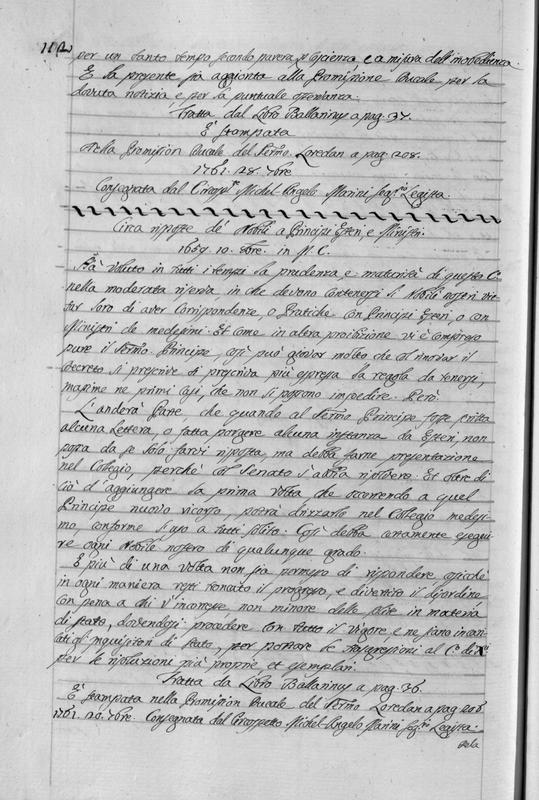 112
per un tanto tempo secondo parerà in coscienza, e a misura dell'inobedienza.
E la presente sia aggionta alla Promissione Ducale per la
dovuta notizia, e per la puntuale osservanza.
Tratta dal Libro Ballarinus a pag. 37.
È stampata
Nella Promission Ducale del Sermo. Loredan a pag. 208.
1761. 28. 7bre.
Consegnata dal Circosptto. Michel Angelo Marini Segrio. Legista.
Circa risposte de' Nobili a Principi Esteri, e Ministri.
1659. 10. 7bre. in M. C.
Hà voluto in tutti i tempi la prudenza e maturità di questo Co.
nella moderata riserva, in che devono contenersi li Nobili nostri vie-
tar loro di aver Corrispondenze, o Pratiche con Principi Esteri, o con
Ministri de medesimi. Et come in altra proibizione vi è compreso
pure il Sermo. Principe, così può giovar molto che col rinovar il
decreto si prescrive di prescriva più espressa la regola da tenersi,
massime ne primi Casi, che non si possono impedire. Però.
L'anderà Parte, che quando al Sermo. Principe fosse scritta
alcuna Lettera, o fatta porgere alcuna instanza da Esteri, non
possa da se solo farvi risposta, ma debba farne presentazione
nel Collegio, perchè col Senato s'abbia risolvere: Et oltre di
ciò d'aggiungere la prima volta che occorrendo a quel
Principe nuovo ricorso, potrà drizzarlo nel Collegio medesi-
mo, conforme l'uso a tutti solito. Così debba certamente esegui-
re ogni Nobile nostro di qualunque grado.
E più di una volta non sia permesso di rispondere, sicchè
in ogni maniera resti troncato il progresso, e divertito il disordine
con pena a chi v'incorresse non minore delle altre in materia
di stato, dovendosi procedere con tutto il vigore, e ne siano incari-
cati gl'Inquisitori di stato, per portare le trasgressioni al Co. di X.
per le risoluzioni più proprie et esemplari.
Tratta da Libro Ballarinus a pag. 36.
È stampata nella Promission Ducale del Sermo. Loredan a pag. 206
1761. 28. 7bre. Consegnata dal Circospetto Michel Angelo Marini Segrio. Legista.